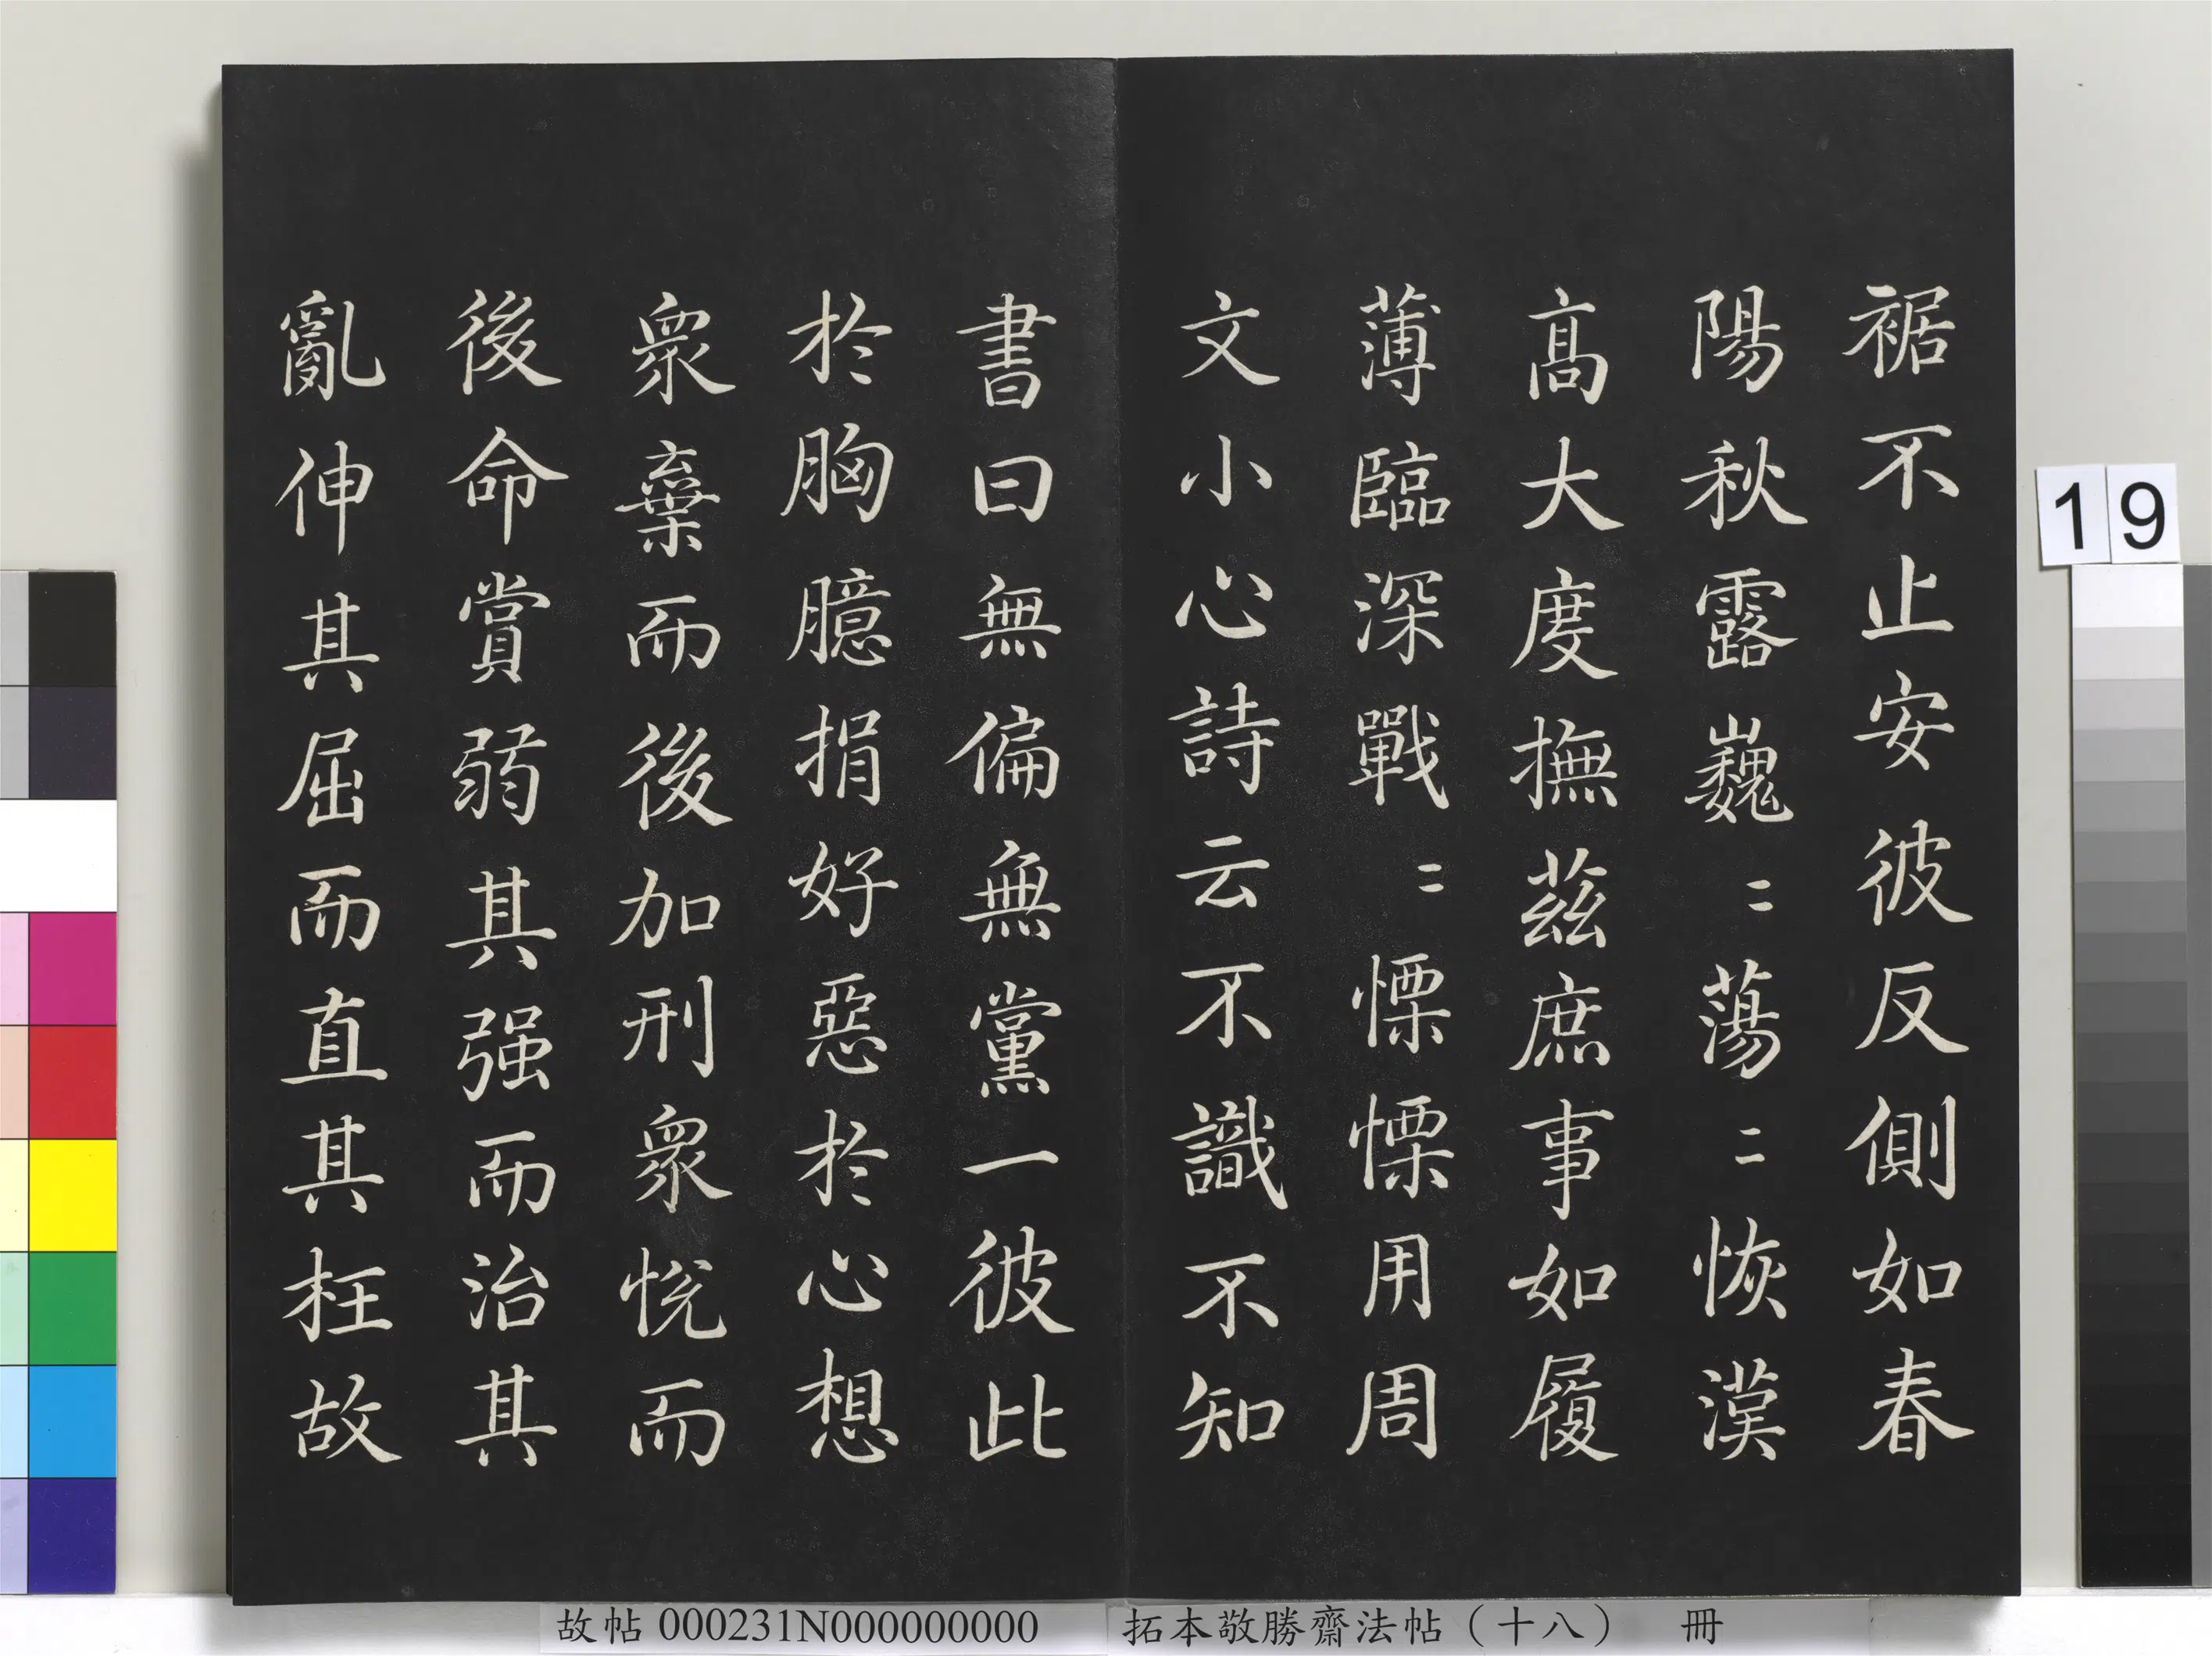 裾不止安彼反側如春
陽秋露巍〻蕩〻恢漢
髙大度撫茲庶事如履
薄臨深戰〻慄慄用周
文小心詩云不識不知
書曰無偏無黨一彼此
於胸臆捐好惡於心想
衆棄而後加刑衆悅而
後命賞弱其强而治其
亂伸其屈而直其枉故
19
故帖 000231N000000000 拓本敬勝齋法帖（十八） 冊